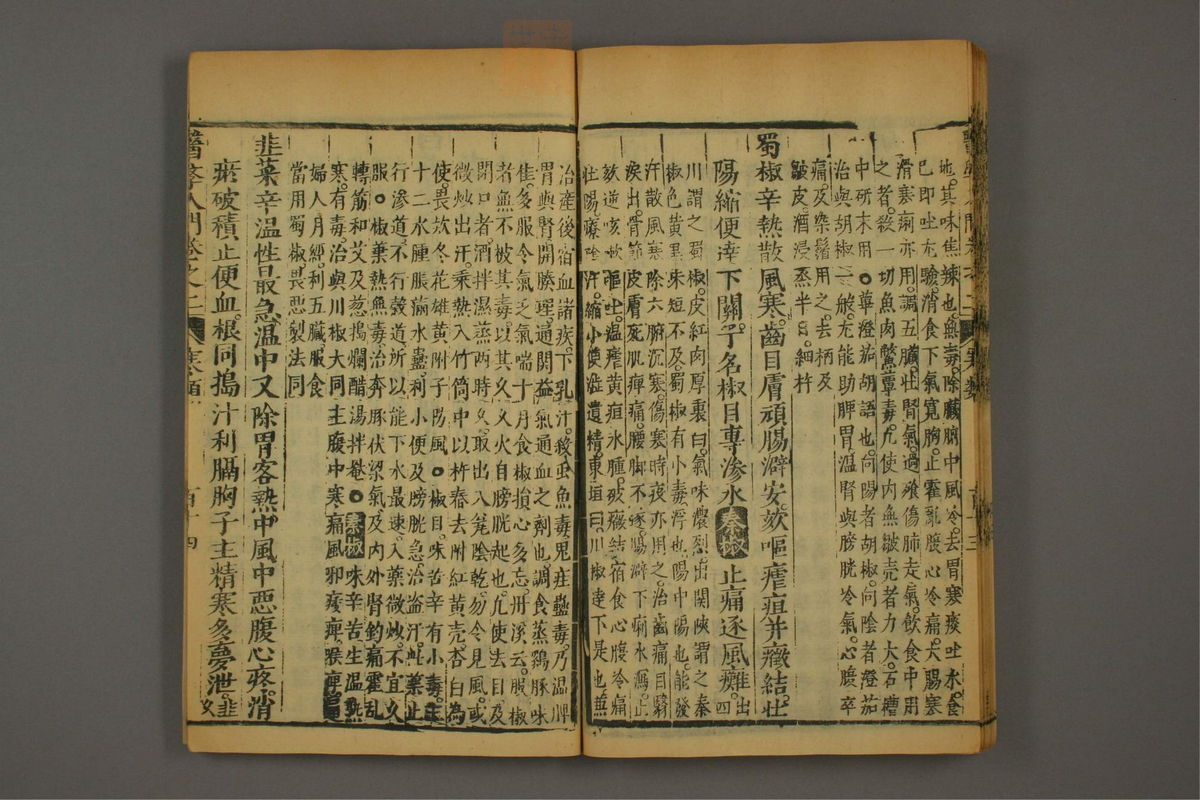 地其味焦辣也無毒除臟腑中風冷去胃寒痰吐水食
已即吐尤驗消食下氣寬胸止霍亂腹心冷痛大腸寒
滑塞痢亦用調五臟壯腎氣過飱傷肺走氣飲食中用
之者殺一切魚肉鱉蕈毒凡使內無皺壳者力大石槽
中研末用○蓽澄茄胡語也向陽者胡椒向陰者澄茄
治與胡椒一般尤能助脾胃溫腎與膀胱冷氣心腹卒
痛及染鬚用之去柄及
皺皮酒浸蒸半日細杵
蜀椒辛熱散風寒齒目膚頑腸澼安欬嘔瘧疸并癥結壯
陽縮便達下關子名椒目專滲水秦椒止痛逐風癱出四
川謂之蜀椒皮紅肉厚裏白氣味濃烈出関陝謂之秦
椒色黃黑味短不及蜀椒有小毒浮也陽中陽也能發
汗散風寒除六腑沉寒傷寒時夜亦用之治齒痛目翳
淚出骨節皮膚死肌痺痛腰脚不遂陽澼下痢水瀉止
欬逆咳嗽嘔吐溫瘧黃疸水腫破癥結宿食心腹冷痛
壯陽療陰汗縮小便澁遺精東垣曰川椒達下是也兼
治產後宿血諸疾下乳汁殺虫魚毒鬼疰蠱毒乃溫脾
胃與腎開腠理通関益氣通血之劑也調食蒸鷄豚味
佳多服令氣乏氣喘十月食椒損心多忘丹溪云服椒
者無不被其毒以其久久火自膀胱起也凡使去目及
閉口者酒拌濕蒸兩時久取出入篼陰乾勿令見風或
微炒出汗乘熱入竹筒中以杵舂去附紅黃壳杏白為
使畏欵冬花雄黃附子防風○椒目味苦辛有小毒主
十二水腫脹滿水蠱利小便及膀胱急治盜汗此藥止
行滲道不行穀道所以能下水最速入藥微炒不宜久
服○椒葉熱無毒治奔豚伏梁氣及內外腎釣痛霍亂
轉筋和艾及葱搗爛醋湯拌罨○秦椒味辛苦生溫熟
寒有毒治與川椒大同主腹中寒痛風邪痿痺喉痺
婦人月經利五臟服食
當用蜀椒畏惡製法同
韭菜辛溫性最急溫中又除胃客熱中風中惡腹心疼消
瘀破積止便血根同搗汁利膈胸子主精寒多夢泄韭又
醫學入門卷之二 寒類 百十四
醫學入門卷之二 寒類